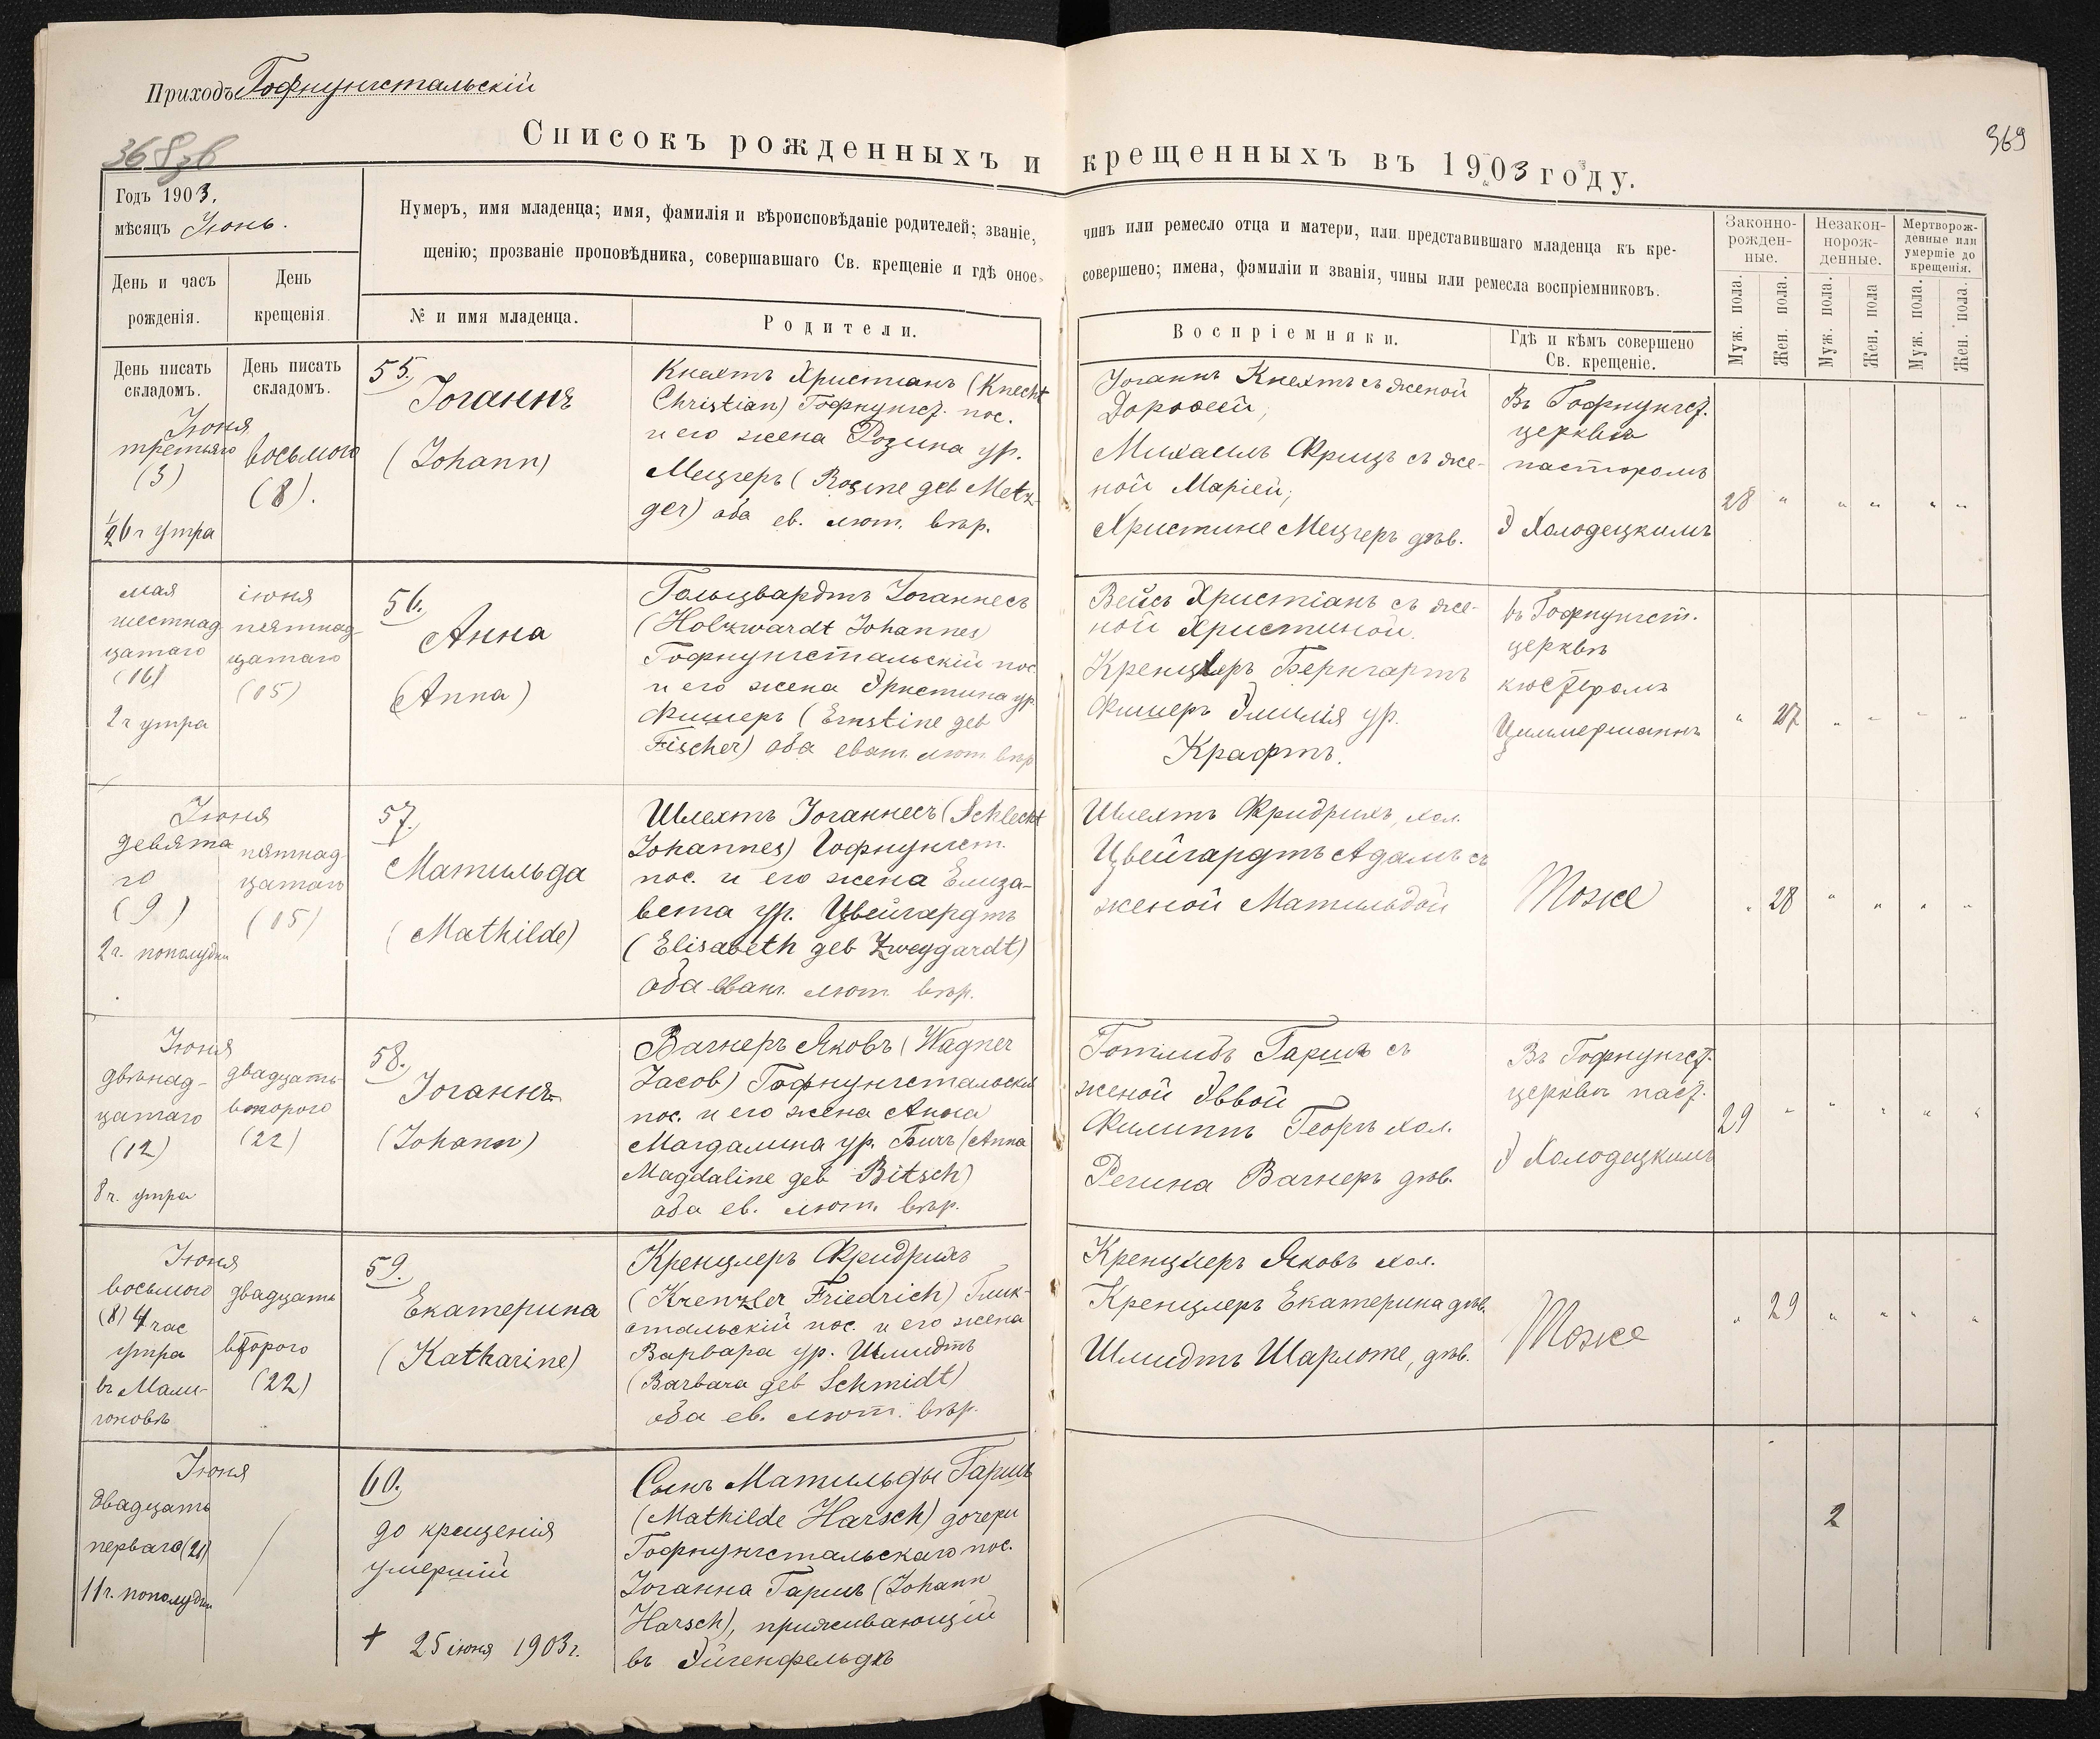 Приходъ Гофнунгстальскій
368 зв
369
Списокъ рожденныхъ и крещенныхъ въ 1903 году.
Годъ 1903.
мѣсяцъ Іюнь.
Нумеръ, имя младенца; имя, фамилія и вѣроисповѣданіе родителей; званіе, чинъ или ремесло отца и матери, или представившаго младенца къ кре-
щенію; прозваніе проповѣдника, совершавшаго Св. крещеніе и гдѣ оное совершено; имена, фамиліи и званія, чины или ремесла воспріемниковъ.
Законно-
рожден-
ные.
Незакон-
норож-
денные.
Мертворож-
денные или
умершіе до
крещенія.
День и часъ
рожденія.
День
крещенія.
№ и имя младенца.
Родители.
Воспріемники.
Гдѣ и кѣмъ совершено
Св. крещеніе.
Муж. пола.
Жен. пола.
Муж. пола.
Жен. пола
Муж. пола.
Жен. пола.
День писать
складомъ.
День писать
складомъ.
Іюня
третьяго
(3)
½6 ч утра
восьмого
(8).
55.
Іоганнъ
(Johann)
Кнехтъ Христіанъ (Knecht
Christian) Гофнунгст. пос.
и его жена Розина ур.
Мецгеръ (Rosine geb Metz-
ger) оба ев. лют. вѣр.
Іоганнъ Кнехтъ съ женой
Доротеей,
Михаилъ Фрицъ съ же-
ной Маріей;
Христине Мецгеръ дѣв.
Въ Гофнунгст.
церквѣ
пасторомъ
Э Холодецкимъ
28 " " " " "
мая
шестнад-
цатаго
(16)
2 ч утра
іюня
пятнад-
цатаго
(15)
56.
Анна
(Anna)
Гольцвардтъ Іоганнесъ
(Holzwardt Johannes)
Гофнунгстальскій пос.
и его жена Эрнстина ур.
Фишеръ (Ernstine geb
Fischer) оба еванг. лют. вѣр
Вейсъ Христіанъ съ же-
ной Христиной.
Кренцлеръ Бернгартъ
Фишеръ Эмилія ур.
Крафтъ.
въ Гофнунгст.
церквѣ
кюстеромъ
Циммерманнъ
" 27 " " " "
Іюня
девята-
го
(9)
2 ч. пополудни
пятнад-
цатаго
(15)
57.
Матильда
(Mathilde)
Шлехтъ Іоганнесъ (Schlecht
Johannes) Гофнунгст.
пос. и его жена Елиза-
вета ур. Цвейгардтъ
(Elisabeth geb Zweygardt)
оба еванг. лют. вѣр.
Шлехтъ Фридрихъ, хол.
Цвейгардтъ Адамъ съ
женой Матильдой
Тоже
" 28 " " " "
Іюня
двѣнад-
цатаго
(12)
8 ч. утра
двадцать
второго
(22)
58.
Іоганнъ
(Johann)
Вагнеръ Яковъ (Wagner
Jacob) Гофнунгстальскій
пос. и его жена Анна
Магдалина ур. Бичъ (Anna
Magdaline geb Bitsch)
оба ев. лют. вѣр.
Готлибъ Гаршъ съ
женой Эввой
Филиппъ Георгъ хол.
Регина Вагнеръ дѣв.
Въ Гофнунгст.
церквѣ паст.
Э Холодецкимъ
29 " " " " "
Іюня
восьмого
(8) 4 час
утра
въ Мали-
гоновѣ
двадцать
второго
(22)
59.
Екатерина
(Katharine)
Кренцлеръ Фридрихъ
(Krenzler Friedrich) Глик-
стальскій пос. и его жена
Варвара ур. Шмидтъ
(Barbara geb Schmidt)
оба ев. лют. вѣр.
Кренцлеръ Яковъ хол.
Кренцлеръ Екатерина дѣв.
Шмидтъ Шарлоте, дѣв.
Тоже
" 29 " " " "
Іюня
двадцать
перваго (21)
11 ч. пополудни
60.
до крещенія
умершій
+ 25 іюня 1903 г.
Сынъ Матильды Гаршъ
(Mathilde Harsch) дочери
Гофнунгстальскаго пос.
Іоганна Гаршъ (Johann
Harsch), проживающій
въ Эйгенфельдѣ
2